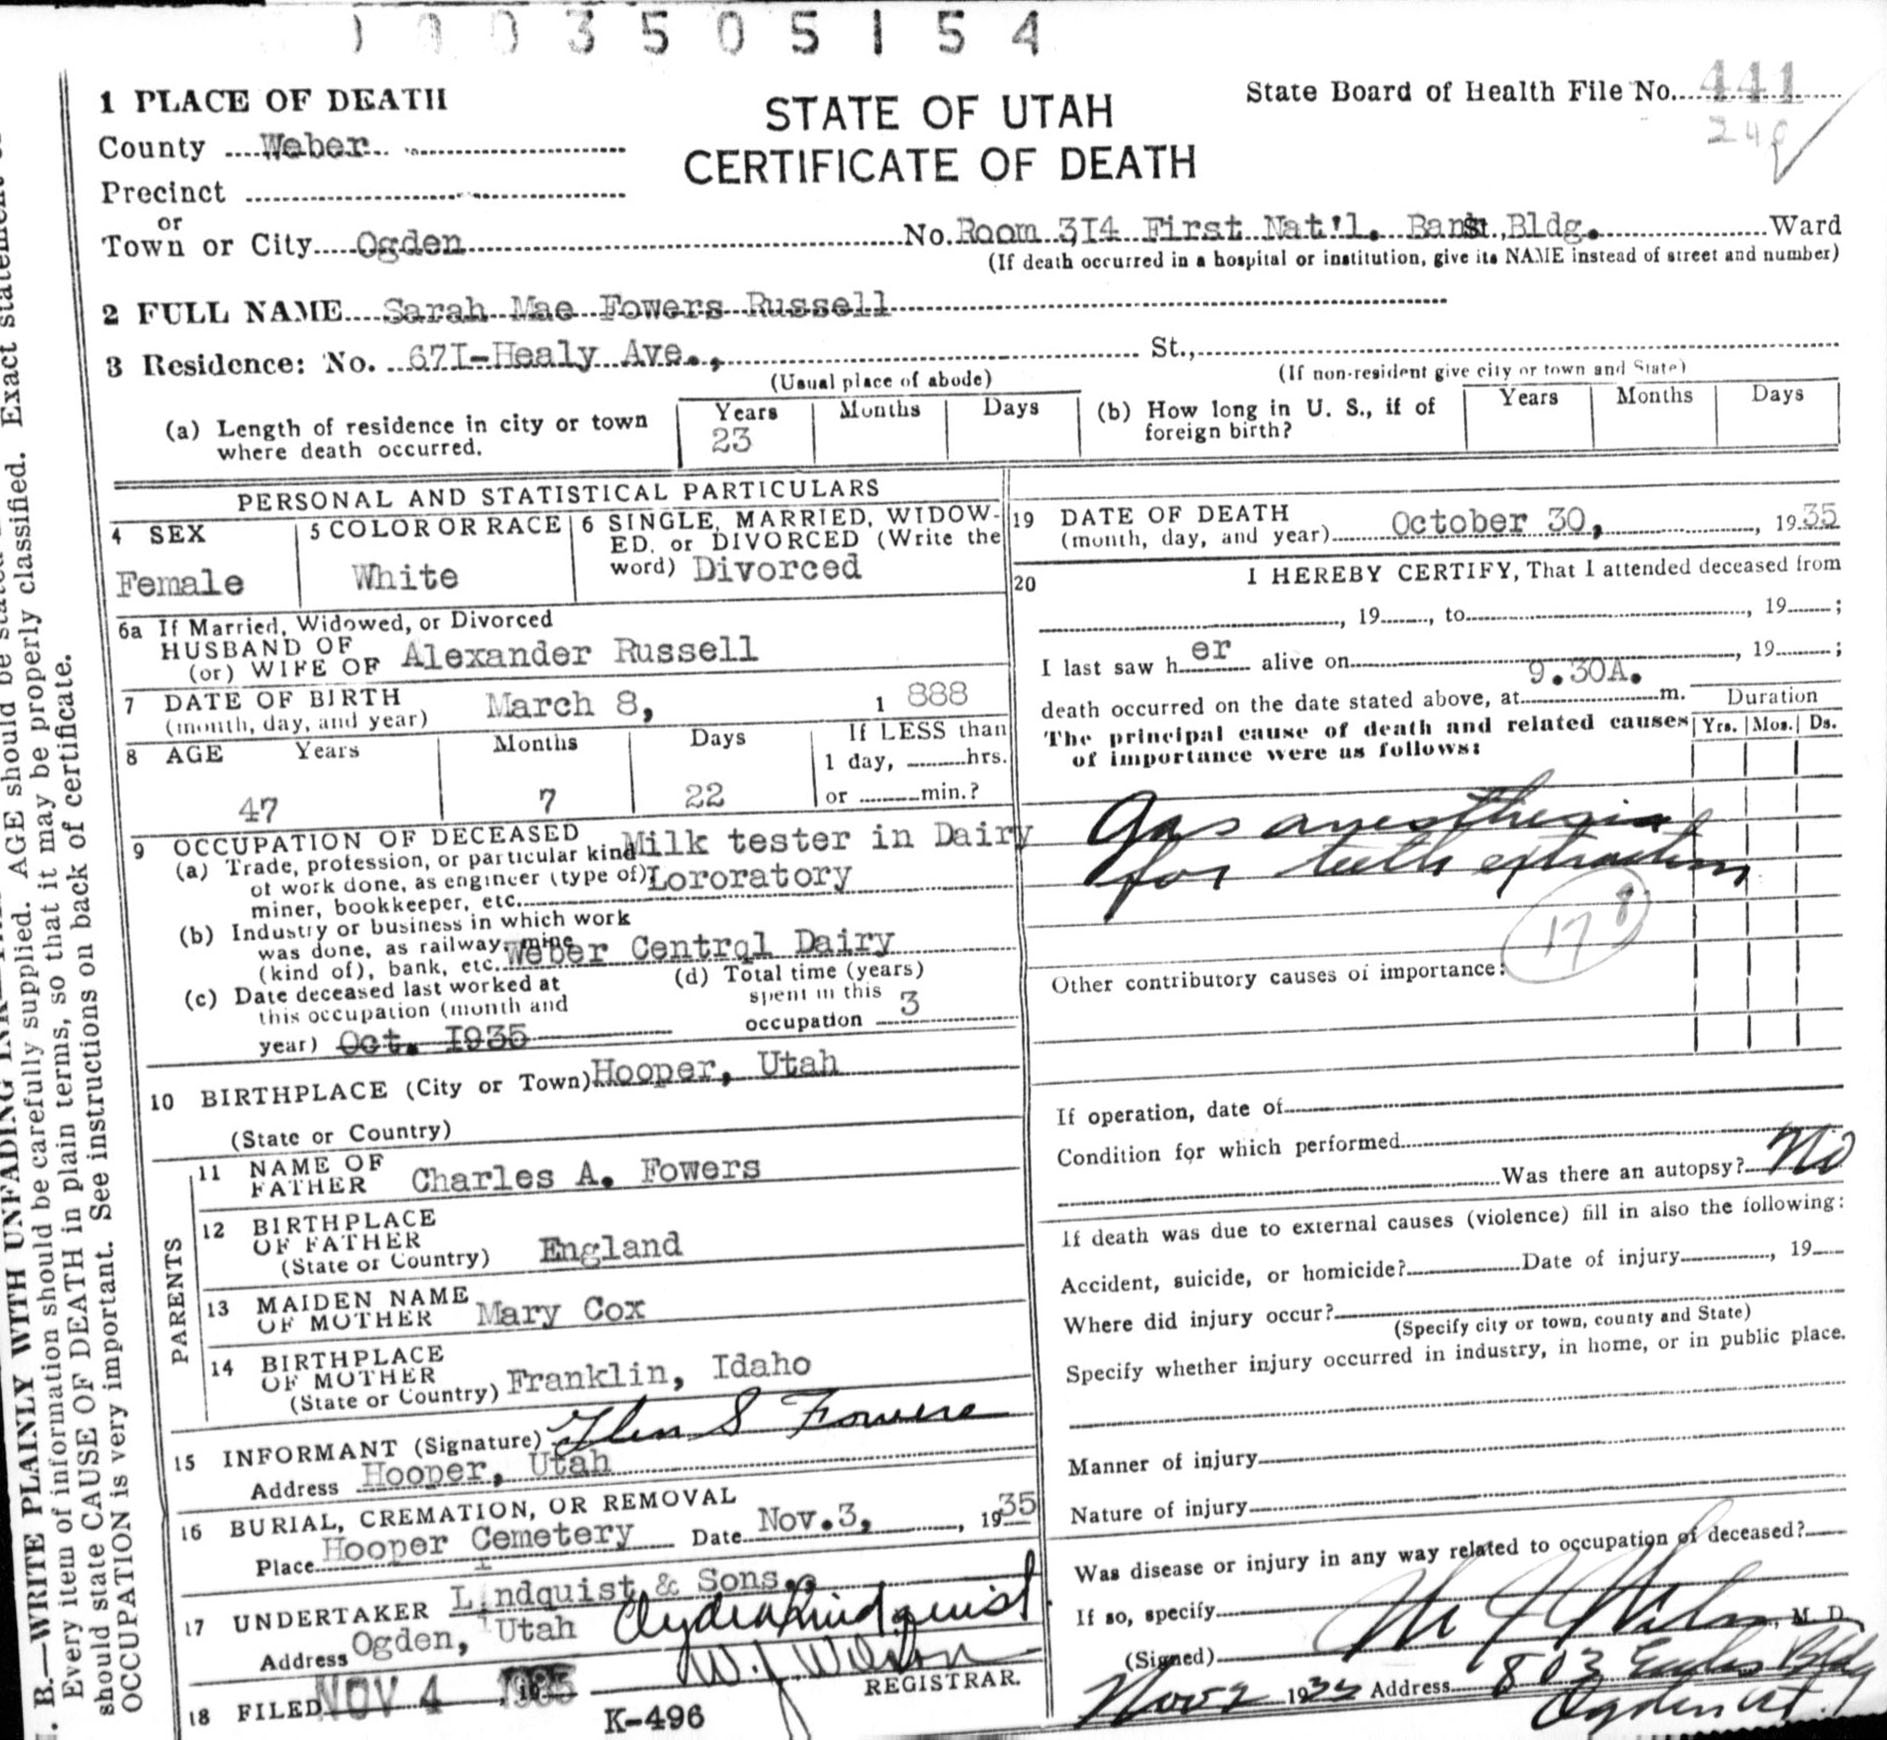 1003505154
1 PLACE OF DEATH
STATE OF UTAH
CERTIFICATE OF DEATH
State Board of Health File No. 441
County Weber
Precinct
or
Town or City Ogden No. Room 314 First Nat'l. Bank Bldg. Ward
(If death occurred in a hospital or institution, give its NAME instead of street and number)
2 FULL NAME Sarah Mae Fowers Russell
3 Residence: No. 671-Healy Ave., St.,
(Usual place of abode) (If non-resident give city or town and State)
(a) Length of residence in city or town where death occurred. Years 23 Months Days
(b) How long in U. S., if of foreign birth? Years Months Days
PERSONAL AND STATISTICAL PARTICULARS
4 SEX
Female
5 COLOR OR RACE
White
6 SINGLE, MARRIED, WIDOW-
ED, or DIVORCED (Write the
word) Divorced
6a If Married, Widowed, or Divorced
HUSBAND OF
(or) WIFE OF Alexander Russell
7 DATE OF BIRTH
(month, day, and year) March 8, 1 888
8 AGE Years Months Days If LESS than
1 day, hrs.
47 7 22 or min.?
9 OCCUPATION OF DECEASED
(a) Trade, profession, or particular kind Milk tester in Dairy
of work done, as engineer (type of) Lororatory
miner, bookkeeper, etc.
(b) Industry or business in which work
was done, as railway, mine
(kind of), bank, etc. Weber Central Dairy
(c) Date deceased last worked at
this occupation (month and
year) Oct. 1935
(d) Total time (years)
spent in this
occupation 3
10 BIRTHPLACE (City or Town) Hooper, Utah
(State or Country)
PARENTS
11 NAME OF
FATHER Charles A. Fowers
12 BIRTHPLACE
OF FATHER
(State or Country) England
13 MAIDEN NAME
OF MOTHER Mary Cox
14 BIRTHPLACE
OF MOTHER
(State or Country) Franklin, Idaho
15 INFORMANT (Signature) Glen S Fowers
Address Hooper, Utah
16 BURIAL, CREMATION, OR REMOVAL
Place Hooper Cemetery Date Nov.3, , 1935
17 UNDERTAKER Lindquist & Sons.
Address Ogden, Utah
18 FILED NOV 4 1935
W. J. Wilson
REGISTRAR.
K-496
19 DATE OF DEATH
(month, day, and year) October 30, , 1935
20 I HEREBY CERTIFY, That I attended deceased from
, 19 , to , 19 ;
I last saw h er alive on , 19 ;
death occurred on the date stated above, at 9.30A. m.
The principal cause of death and related causes
of importance were as follows:
Duration
Yrs. Mos. Ds.
Gas anesthesia
for teeth extraction
17
Other contributory causes of importance:
If operation, date of
Condition for which performed
Was there an autopsy? No
If death was due to external causes (violence) fill in also the following:
Accident, suicide, or homicide? Date of injury , 19
Where did injury occur?
(Specify city or town, county and State)
Specify whether injury occurred in industry, in home, or in public place.
Manner of injury
Nature of injury
Was disease or injury in any way related to occupation of deceased?
If so, specify
(Signed) , M. D.
Nov 2 1935 Address 803 Eccles Bldg
Ogden Ut.
B.—WRITE PLAINLY WITH UNFADING INK
Every item of information should be carefully supplied. AGE should be stated Exact statement
should state CAUSE OF DEATH in plain terms, so that it may be properly classified.
OCCUPATION is very important. See instructions on back of certificate.